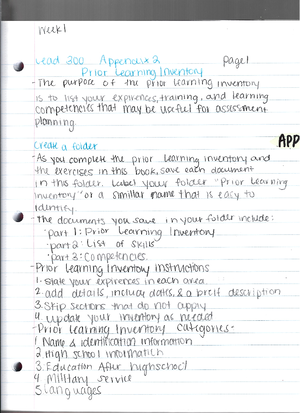 Week 1
Lead 300 Appendix 2 Page 1
Prior Learning Inventory
-The purpose of the prior learning inventory
is to list your expirences, training, and learning
competencies that may be useful for assessment
planning.
Create a folder
APP
-As you complete the prior learning inventory and
the exercises in this book, save each document
in this folder. Label your folder "Prior Learning
Inventory" or a simillar name that is easy to
identify.
-The documents you save in your folder include:
·part 1: Prior Learning Inventory
·part 2: List of Skills
·part 3: Competencies.
-Prior Learning Inventory Instructions
1. State your expirences in each area
2. add details, include dates, & a breif description
3. Skip sections that do not apply
4. Update your inventory as needed
-Prior Learning Inventory Categories-
1. Name & identification information
2 High school information
3. Education After highschool
4 Military service
5 languages